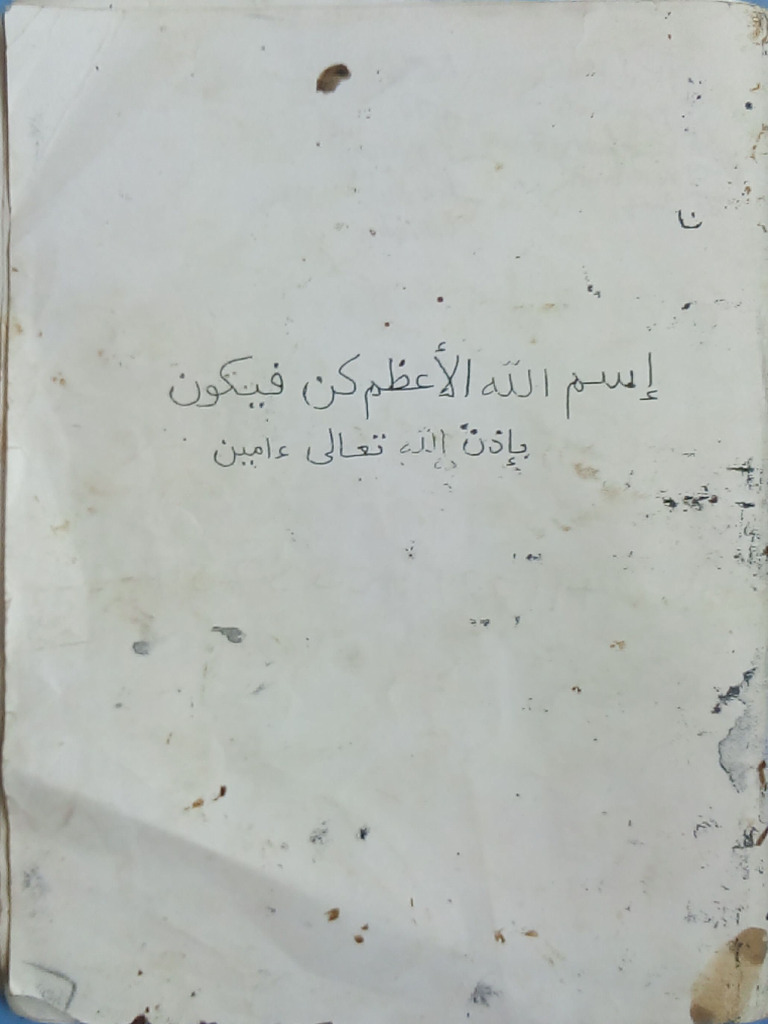 نا
إسم الله الأعظم كن فيكون
بإذن الله تعالى ءامين